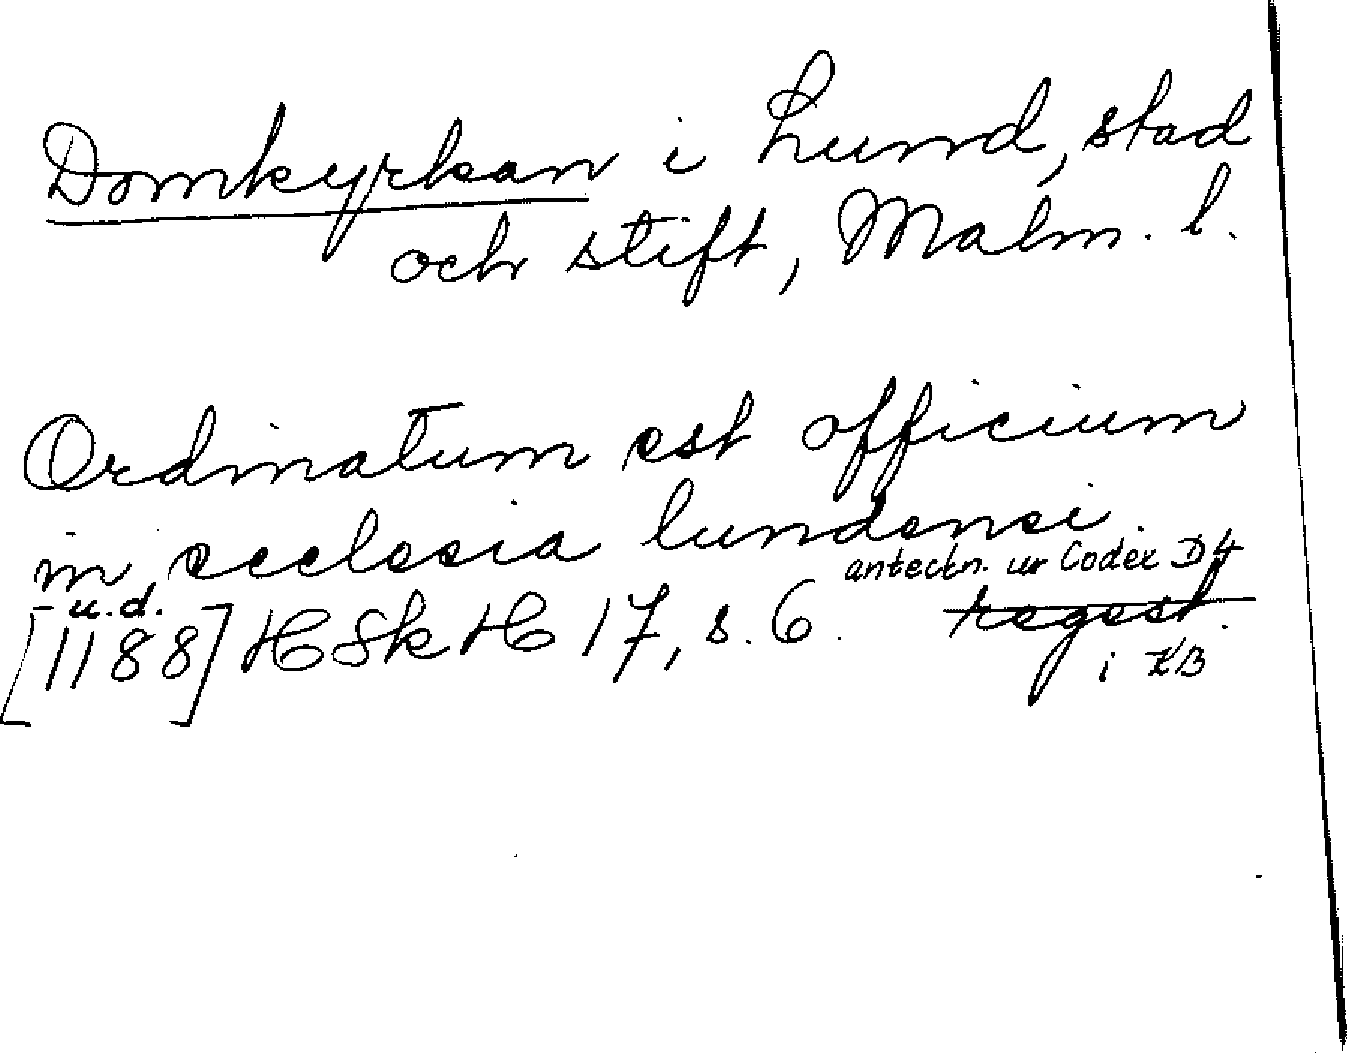 Domkyrkan i Lund, stad
och stift, Malm. l.
Ordinatum est officium
in ecclesia lundensi.
antectn. ur Codex D4
u.d.
[1188] HSkH 17, s. 6. regest.
i KB